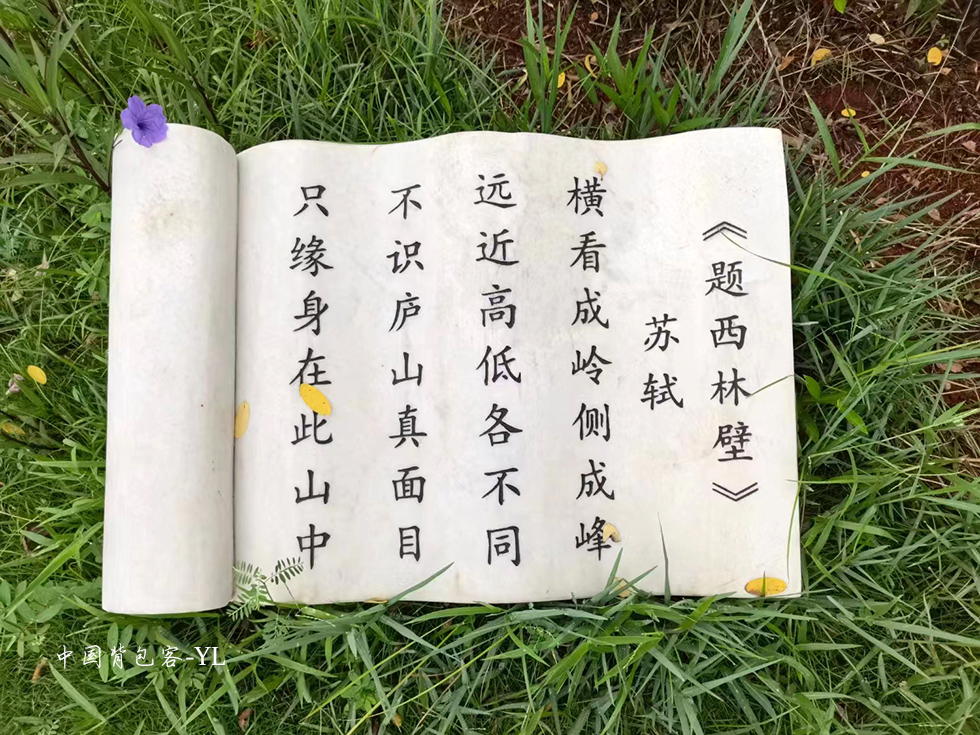 《题西林壁》
苏轼
横看成岭侧成峰
远近高低各不同
不识庐山真面目
只缘身在此山中
中国背包客-YL